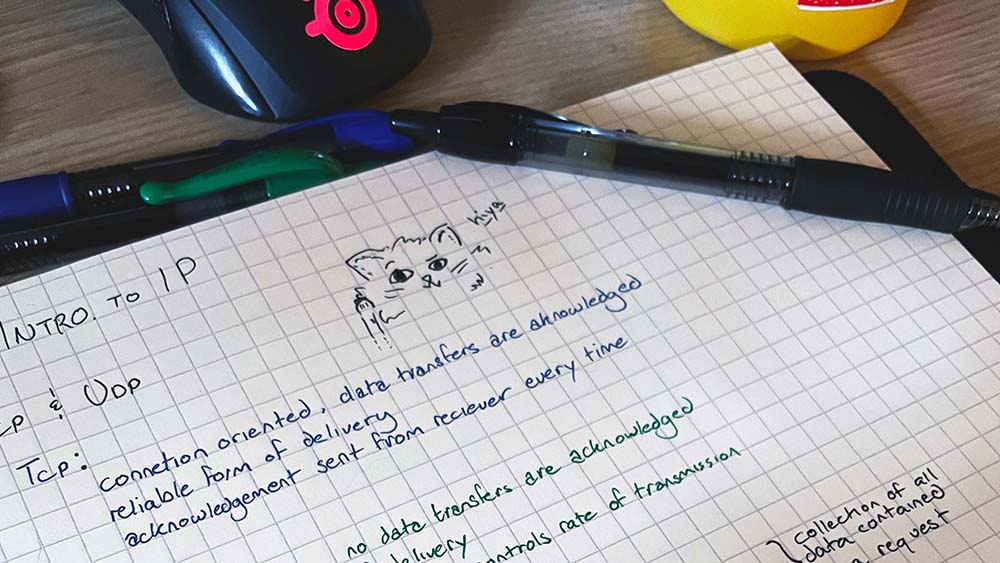 hiya
INTRO. TO IP
CP & UDP
TCP: connetion oriented, data transfers are aknowledged
reliable form of delivery
acknowledgement sent from reciever every time
no data transfers are acknowledged
delivery
ontrols rate of transmission
collection of all
data contained
a request